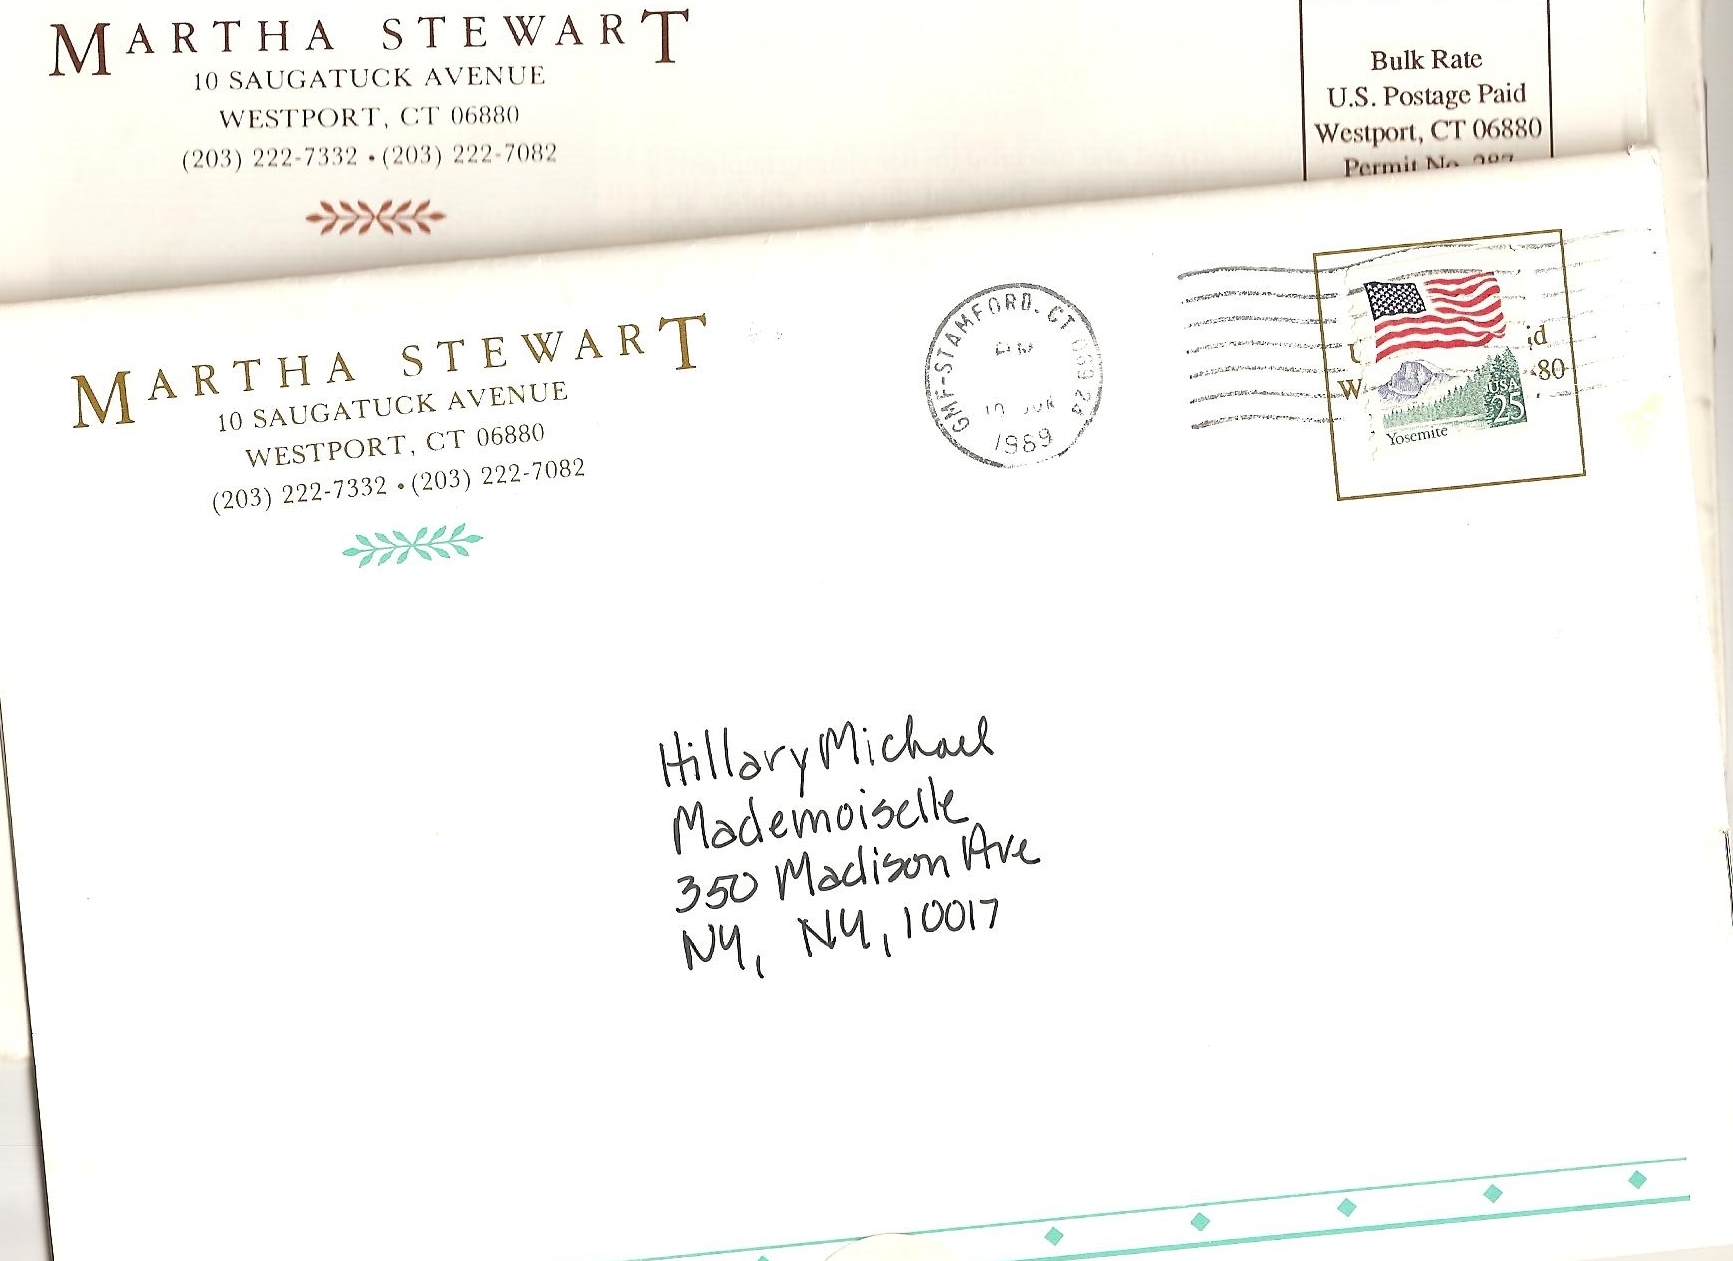 MARTHA STEWART
10 SAUGATUCK AVENUE
WESTPORT, CT 06880
(203) 222-7332 • (203) 222-7082
Bulk Rate
U.S. Postage Paid
Westport, CT 06880
Permit No.
MARTHA STEWART
10 SAUGATUCK AVENUE
WESTPORT, CT 06880
(203) 222-7332 • (203) 222-7082
GMF-STAMFORD, CT
PM
1989
id
W 80
USA
25
Yosemite
Hillary Michael
Mademoiselle
350 Madison Ave
NY, NY, 10017